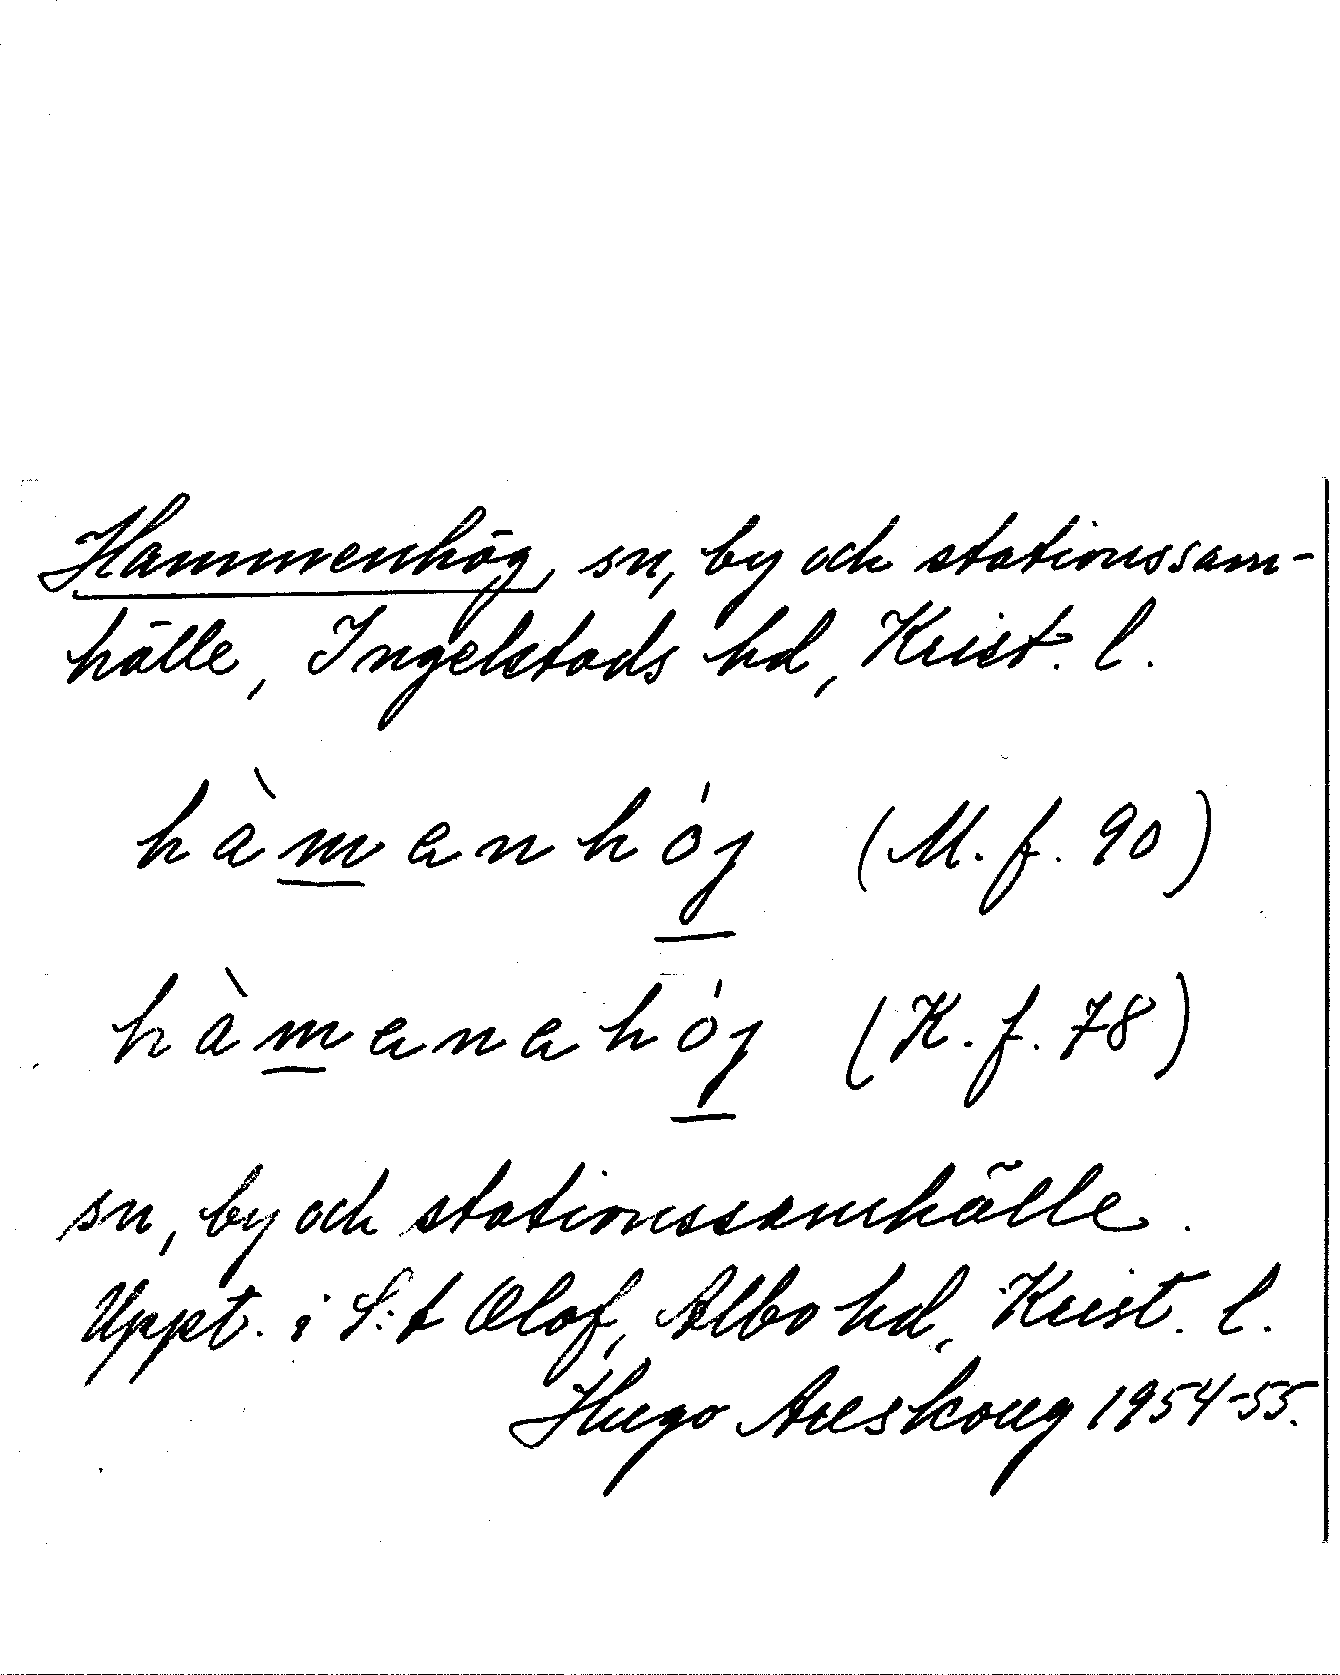 Hammenhög, sn, by och stationssam-
hälle, Ingelstads hd, Krist. l.
hàmanhój (M. f. 90)
hàmanahój (K. f. 78)
sn, by och stationssamhälle.
Uppt. i S:t Olof, Albo hd, Krist. l.
Hugo Areskoug 1954-55.